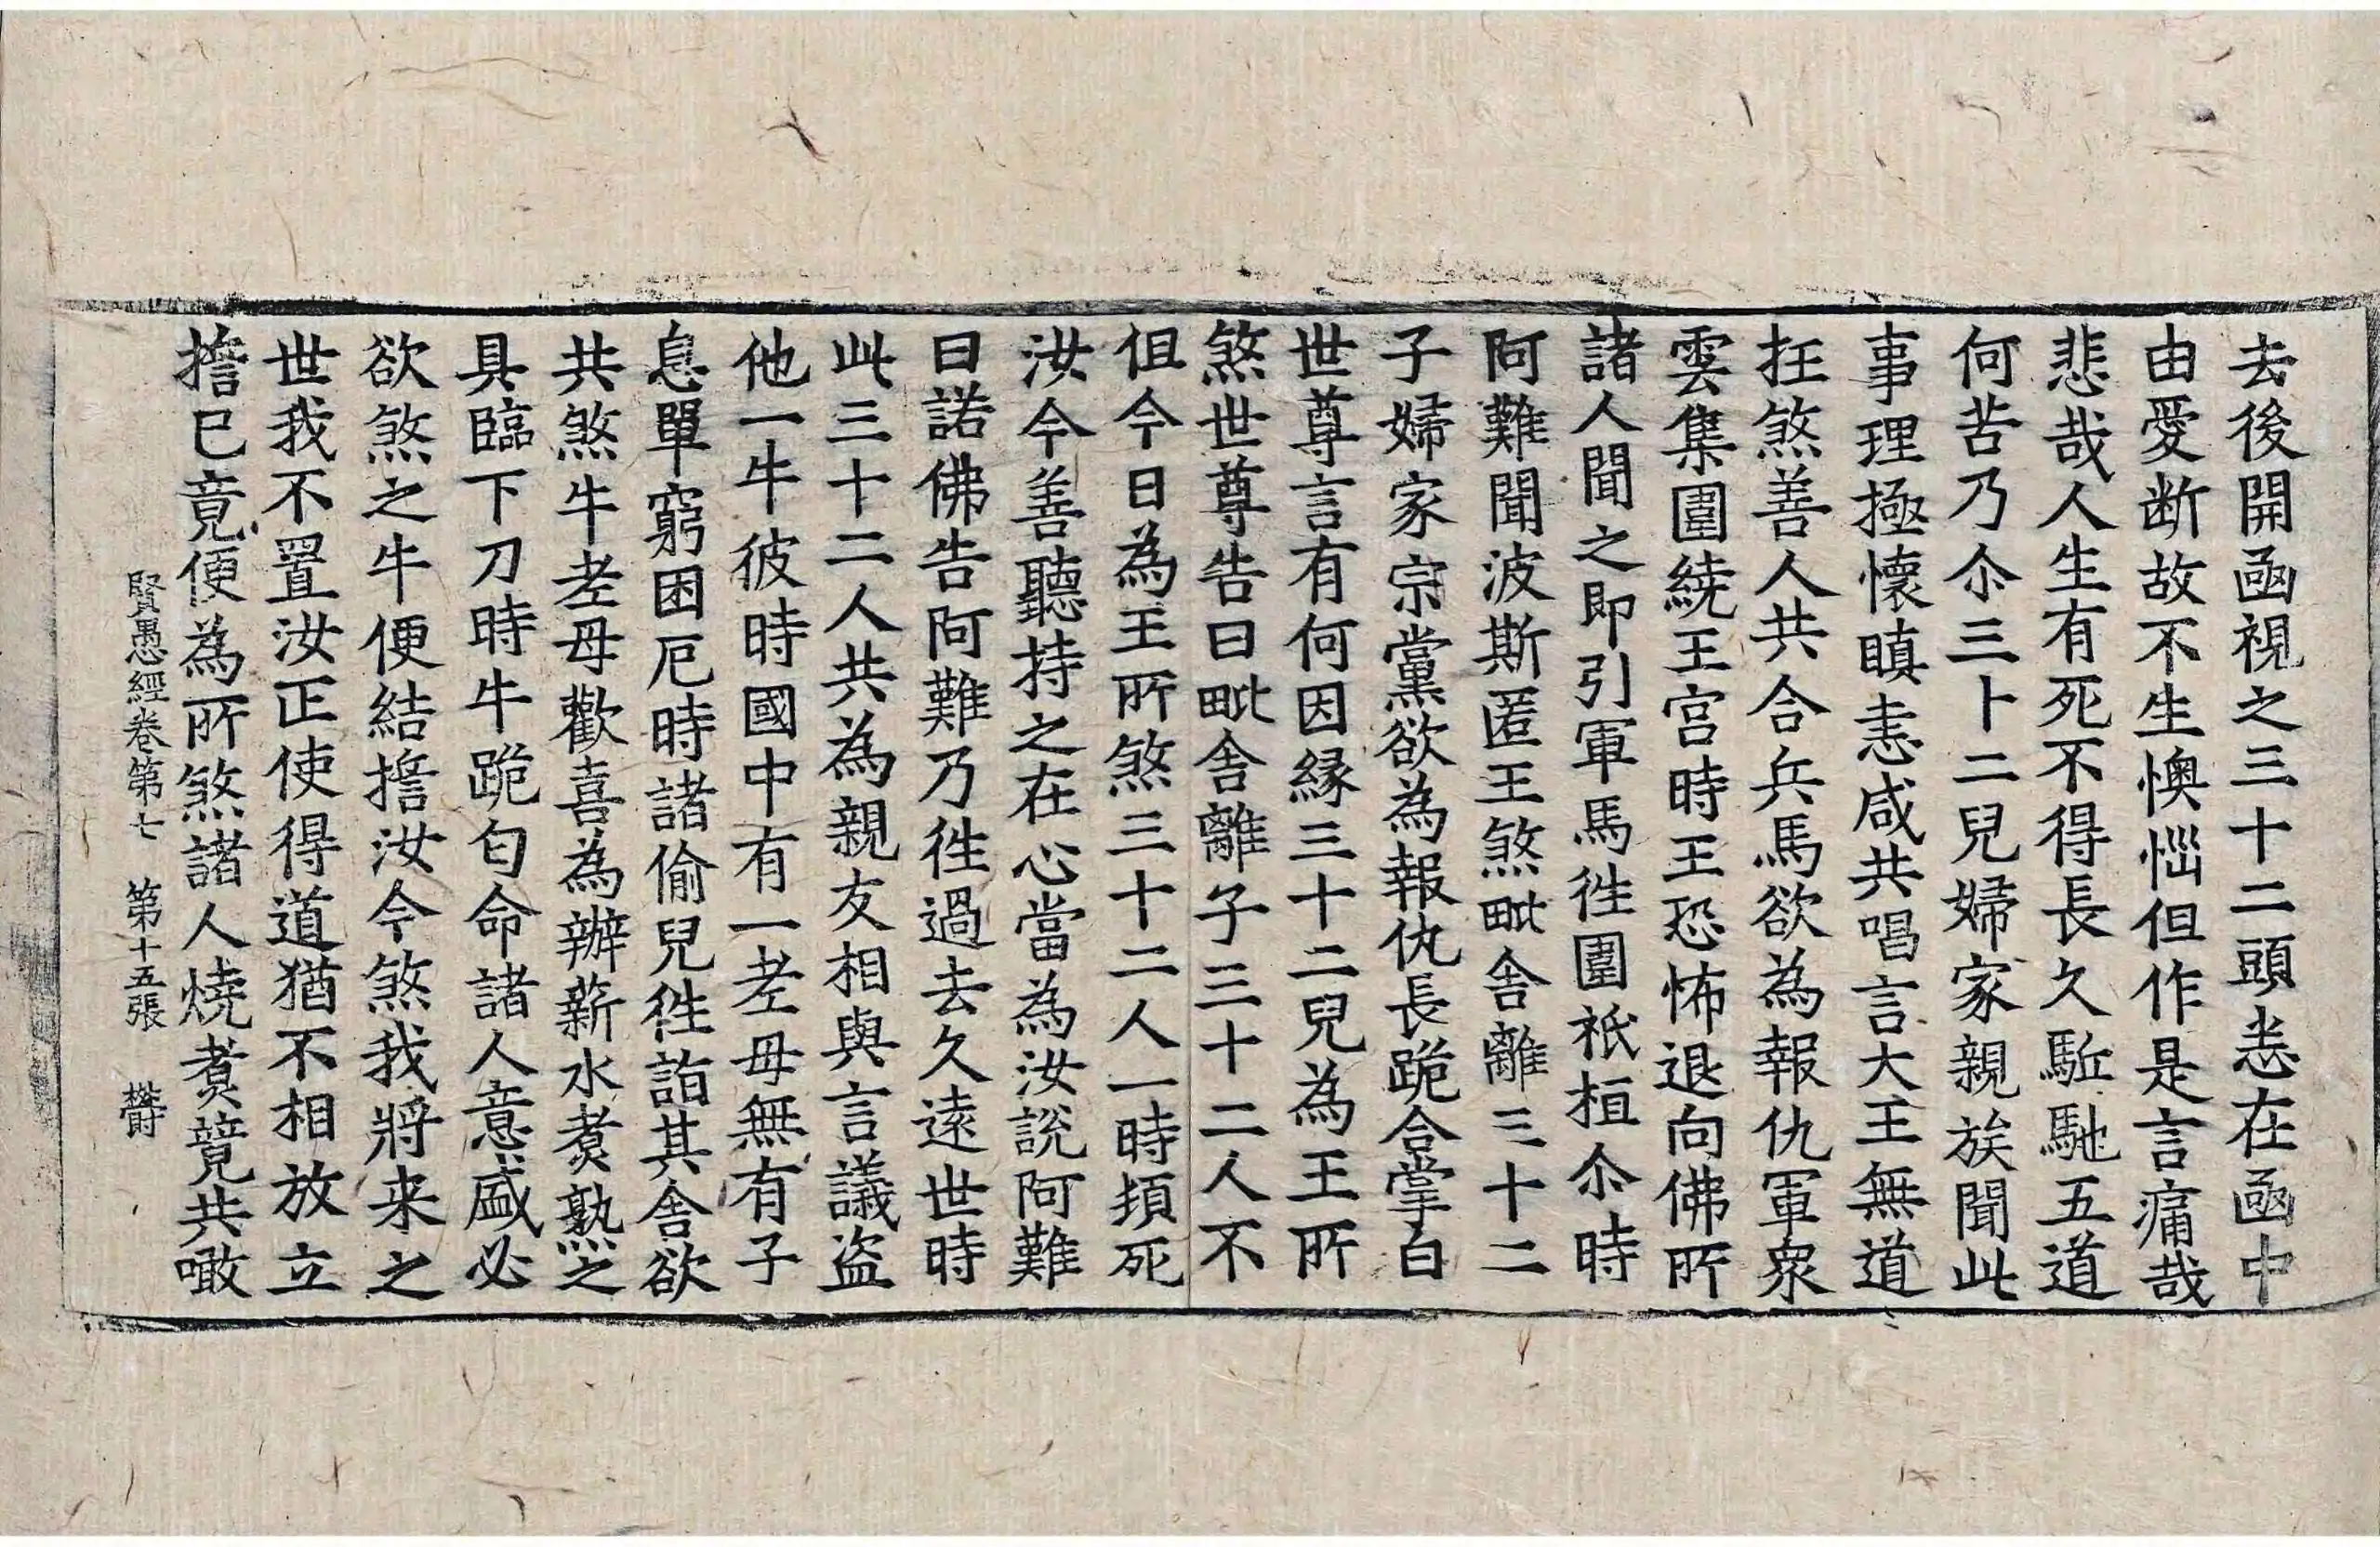 去後開凾視之三十二頭悉在凾中
由愛断故不生懊惱但作是言痛哉
悲哉人生有死不得長久駈馳五道
何苦乃尒三十二兒婦家親族聞此
事理極懷瞋恚咸共唱言大王無道
抂煞善人共合兵馬欲為報仇軍衆
雲集圍繞王宮時王恐怖退向佛所
諸人聞之即引軍馬徃圍祇桓尒時
阿難聞波斯匿王煞毗舍離三十二
子婦家宗黨欲為報仇長跪合掌白
世尊言有何因緣三十二兒為王所
煞世尊告曰毗舍離子三十二人不
但今日為王所煞三十二人一時頓死
汝今善聽持之在心當為汝說阿難
曰諾佛告阿難乃徃過去久遠世時
此三十二人共為親友相與言議盜
他一牛彼時國中有一老母無有子
息單窮困厄時諸偷兒徃詣其舍欲
共煞牛老母歡喜為辦薪水煑熟之
具臨下刀時牛跪匄命諸人意盛必
欲煞之牛便結擔汝今煞我將来之
世我不置汝正使得道猶不相放立
擔已竟便為所煞諸人燒煑竟共噉
賢愚經卷第七　第十五張　欝